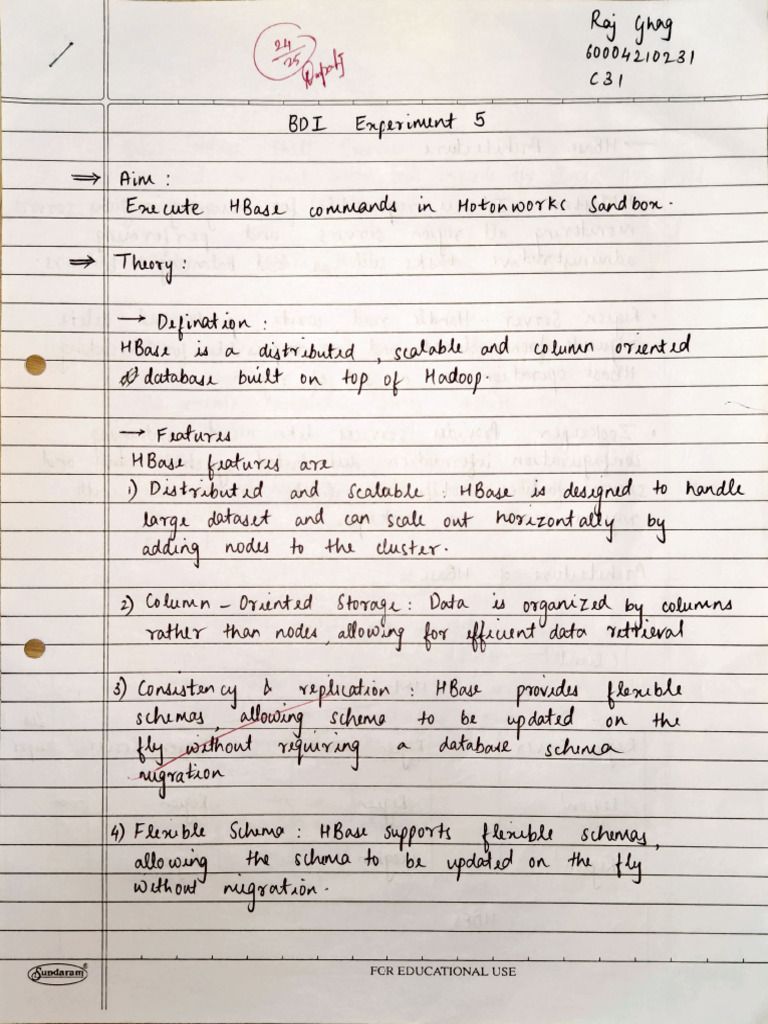 Raj Ghag
60004210231
C31
24/25
BDI Experiment 5
⇒ Aim :
Execute HBase commands in Hotonworks Sandbox.
⇒ Theory :
→ Defination :
HBase is a distributed, scalable and column oriented
database built on top of Hadoop.
→ Features
HBase features are
1) Distributed and Scalable : HBase is designed to handle
large dataset and can scale out horizontally by
adding nodes to the cluster.
2) Column - Oriented Storage : Data is organized by columns
rather than nodes, allowing for efficient data retrieval
3) Consistency & replication : HBase provides flexible
schemas, allowing schema to be updated on the
fly without requiring a database schema
migration
4) Flexible Schema : HBase supports flexible schemas,
allowing the schema to be updated on the fly
without migration.
Sundaram®
FOR EDUCATIONAL USE